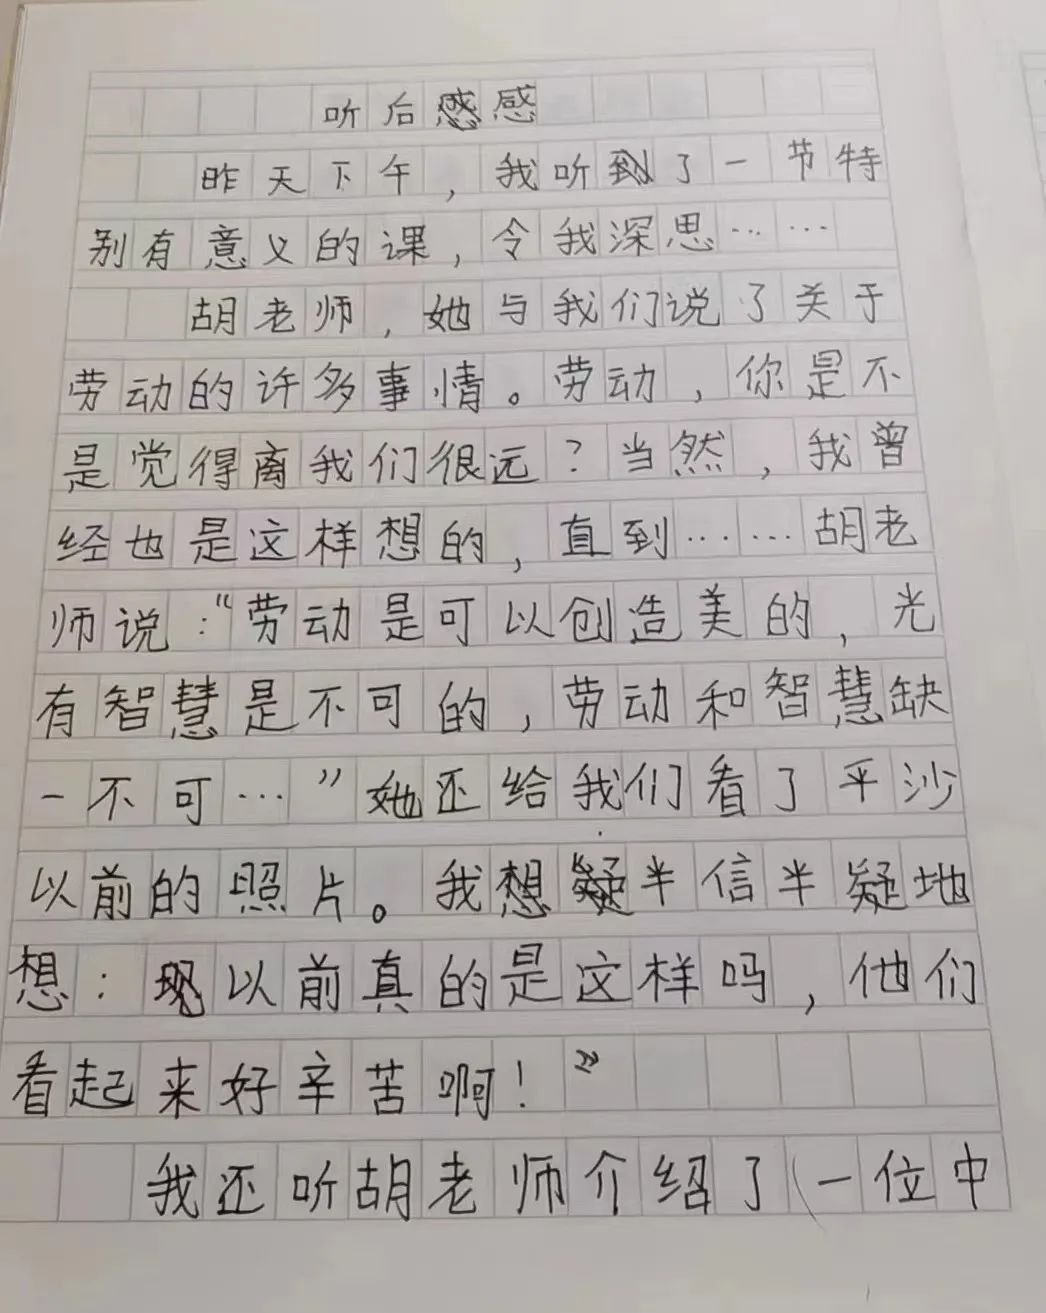 听后感感
昨天下午，我听到了一节特
别有意义的课，令我深思……
胡老师，她与我们说了关于
劳动的许多事情。劳动，你是不
是觉得离我们很远？当然，我曾
经也是这样想的，直到……胡老
师说：“劳动是可以创造美的，光
有智慧是不可的，劳动和智慧缺
一不可…”她还给我们看了平沙
以前的照片。我想疑半信半疑地
想：现以前真的是这样吗，他们
看起来好辛苦啊！”
我还听胡老师介绍了一位中